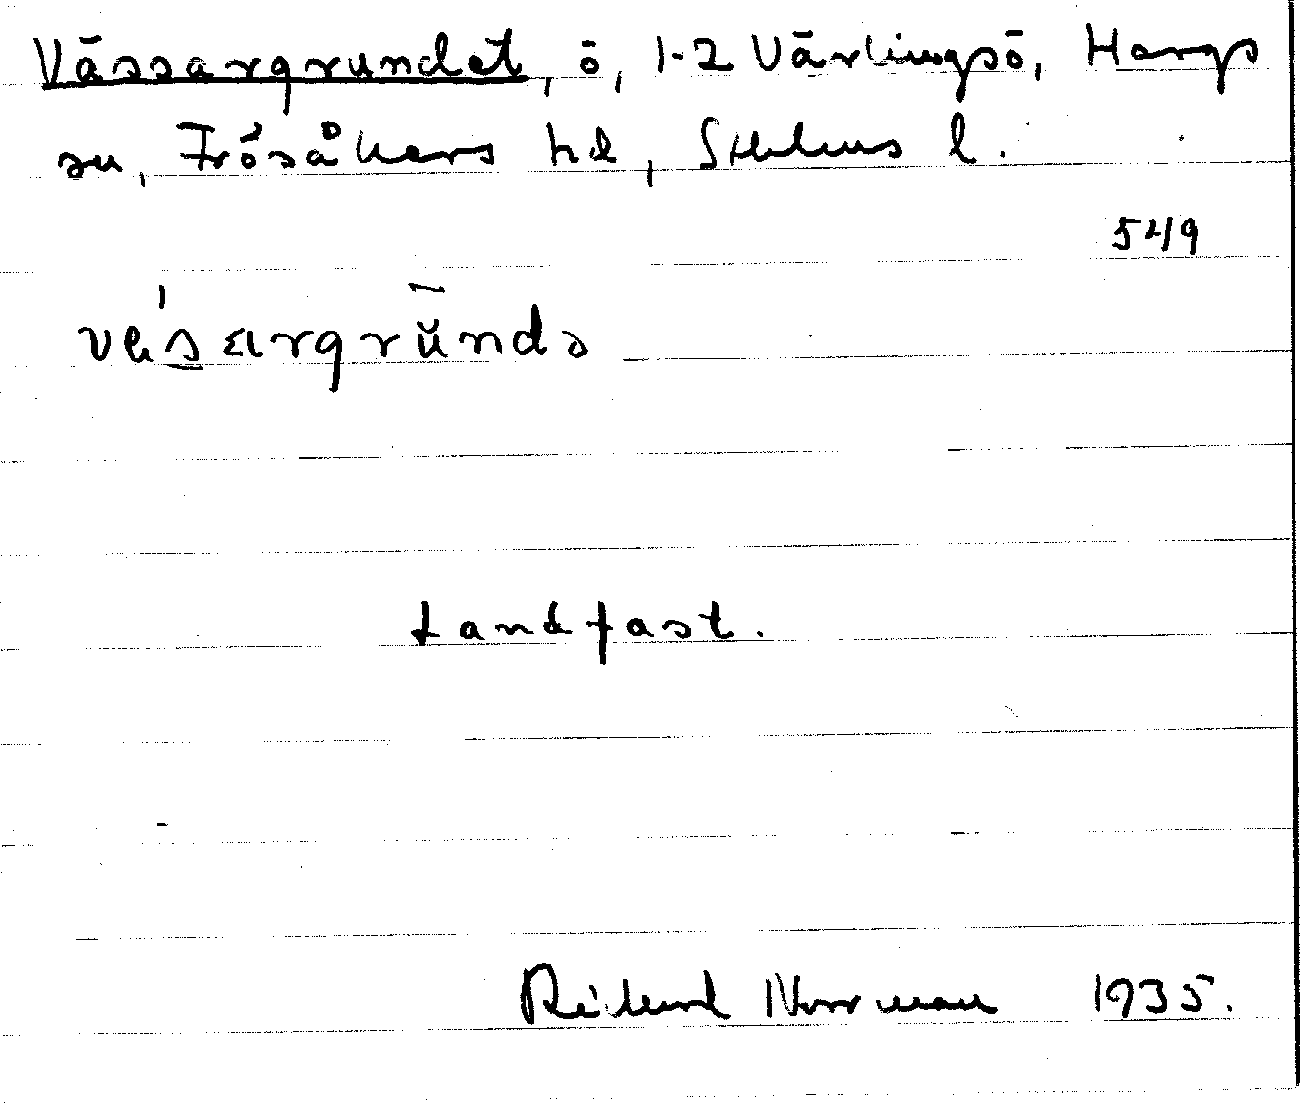 Vässargrundet, ö, 1-2 Värlingsö, Hargs
sn, Frösåkers hd, Sthlms l.
549
Landfast.
Rikard Norrman 1935.